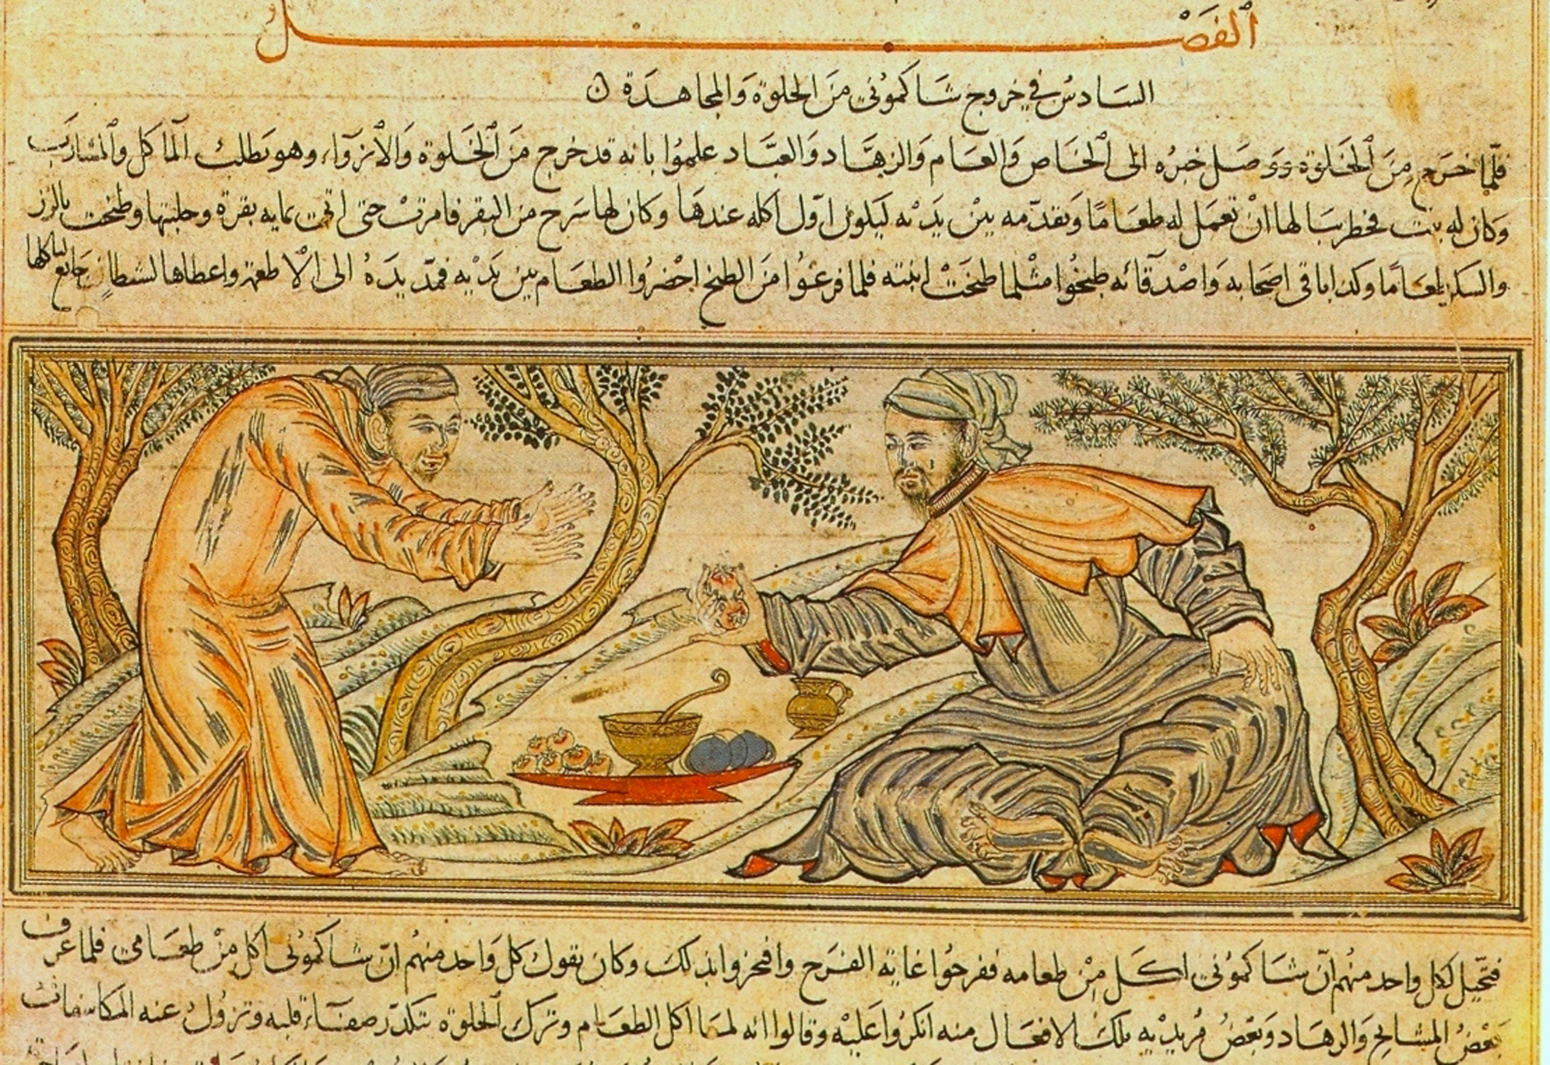 الفصل
السادس في خروج شاكموني من الخلوة والمجاهدة
فلما خرج من الخلوة ووصل خبره الى الخاص والعام والزهاد والعباد علموا بانه قد خرج من الخلوة والانزواء وهو يطلب المآكل والمشارب
وكان له بنت فخطر ببالها ان تعمل له طعامًا وتقدمه بين يديه ليكون اول اكله عندها وكان لها سرح من البقر فامرت حتى بقرة وحلبتها وطبخت بالرز
والسكر طعامًا وكذا باقي اصحابه واصدقائه طبخوا مثلما طبخت ابنته فلما فرغوا من الطبخ احضروا الطعام بين يديه فمد يده الى الاطعمة واعطاها لشيطان جائع
فتخيل لكل واحد منهم ان شاكموني اكل من طعامه ففرحوا غاية الفرح وافتخروا بذلك وكان يقول كل واحد منهم ان شاكموني اكل من طعامي فلما عرف
بعض المشايخ والزهاد وبعض مريديه تلك الافعال منه انكروا عليه وقالوا انه لما اكل الطعام وترك الخلوة تتكدر صفاء قلبه وتزول عنه المكاشفات